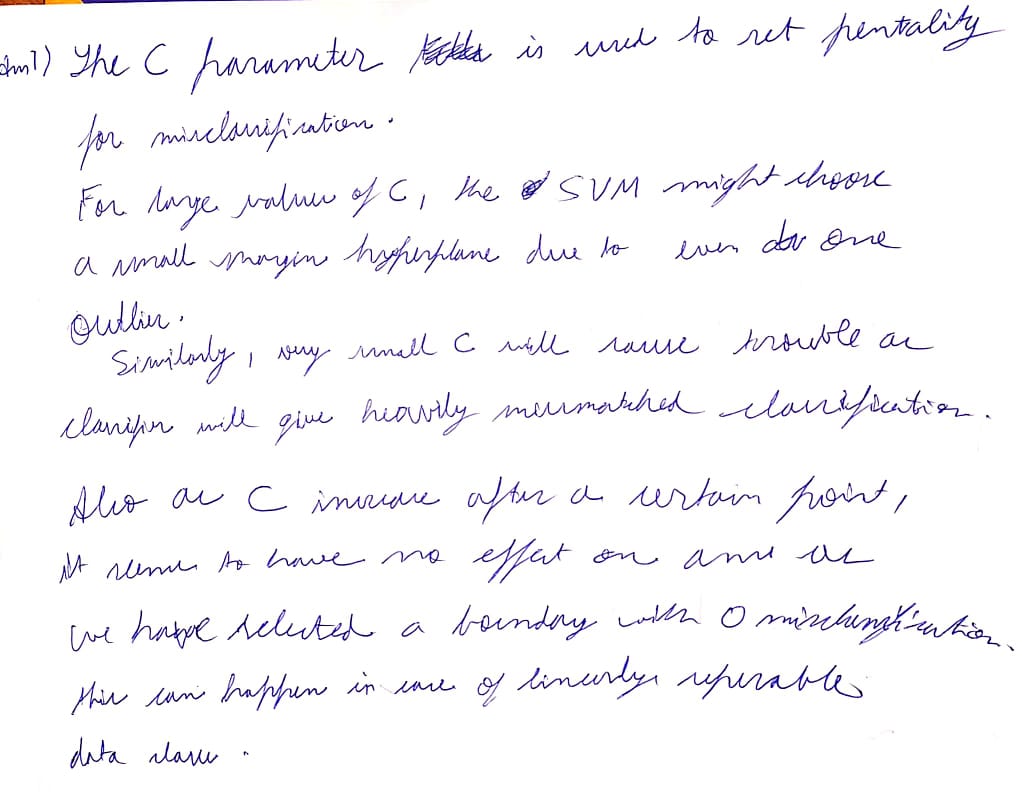 Ans1) The C parameter is used to set pentality
for misclassification.
For large values of C, the SVM might choose
a small margin hyperplane due to even one
Outlier.
Similarly, very small C will cause trouble as
classifier will give heavily missmatched classification.
Also as C increase after a certain point,
it seems to have no effect on as
we have selected a boundary with 0 misclassification.
this can happen in case of linearly seperable
data classes.